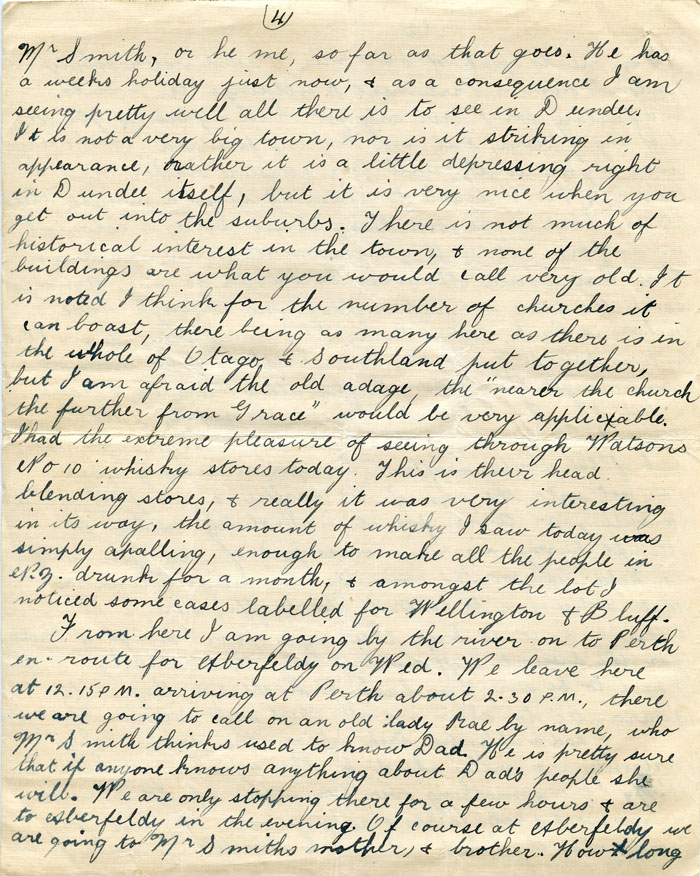 (4)
Mr Smith, or he me, so far as that goes. He has
a weeks holiday just now, & as a consequence I am
seeing pretty well all there is to see in Dundee.
It is not a very big town, nor is it striking in
appearance, rather it is a little depressing right
in Dundee itself, but it is very nice when you
get out into the suburbs. There is not much of
historical interest in the town, & none of the
buildings are what you would call very old. It
is noted I think for the number of churches it
can boast, there being as many here as there is in
the whole of Otago & Southland put together,
but I am afraid the old adage, the "nearer the church
the further from Grace" would be very applicable.
I had the extreme pleasure of seeing through Watsons
No 10 whisky stores today. This is their head
blending stores, & really it was very interesting
in its way, the amount of whisky I saw today was
simply apalling, enough to make all the people in
N.Z. drunk for a month, & amongst the lot I
noticed some cases labelled for Wellington & Bluff.
From here I am going by the river on to Perth
en-route for Aberfeldy on Wed. We leave here
at 12.15 P.M. arriving at Perth about 2.30 P.M., there
we are going to call on an old lady Rae by name, who
Mr Smith thinks used to know Dad. He is pretty sure
that if anyone knows anything about Dad's people she
will. We are only stopping there for a few hours & are
to Aberfeldy in the evening. Of course at Aberfeldy we
are going to Mr Smiths mother, & brother. How long